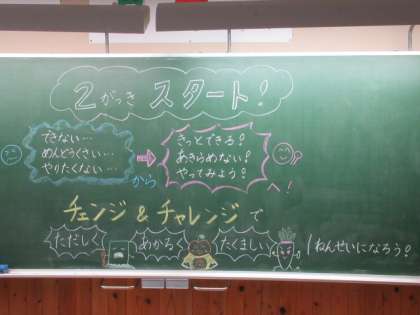 2がっき スタート!
できない…
めんどうくさい…
やりたくない…
から
きっとできる!
あきらめない!
やってみよう!
へ!
チェンジ & チャレンジで
ただしく
あかるく
たくましい
1ねんせいになろう!